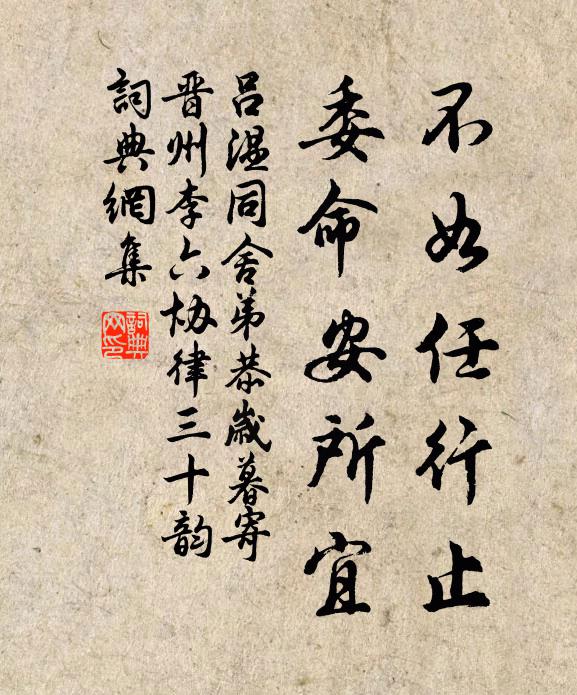 不如任行止
委命安所宜
吕温同舍弟恭歲暮寄
晋州李六协律三十韵
詞典網集
詞典网印